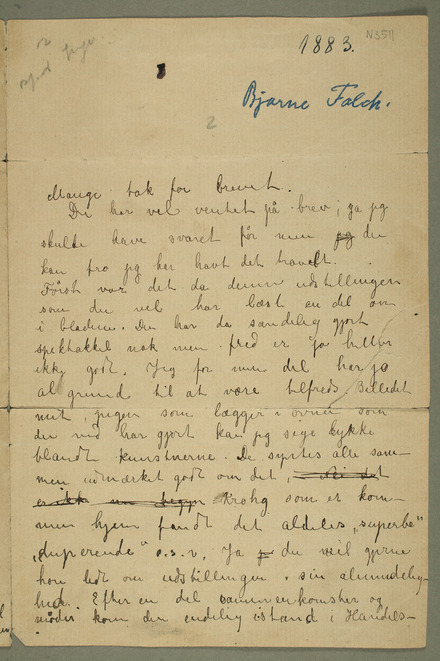 N3511
1883.
Bjarne Falck.
2
Mange tak for brevet.
Du har vel ventet på brev; ja jeg
skulde have svaret før men jeg du
kan tro jeg har havt det travelt.
Først var det da denne udstillingen
som du vel har læst en del om
i bladene. Den har da sandelig gjort
spektakkel nok men fred er jo heller
ikke godt. Jeg for min del har jo
al grund til at være tilfreds. Billedet
mit, pigen som lægger i ovnen som
du ved har gjort kan jeg sige lykke
blandt kunstnerne. De syntes alle sam-
men udmærket godt om det,
Krohg som er kom-
men hjem fandt det aldeles „superbe"
„duperende" o.s.v. Ja du vil gjerne
høre lidt om udstillingen i sin almindelig-
hed. Efter en del sammenkomster og
møder kom den endelig istand i Handels-